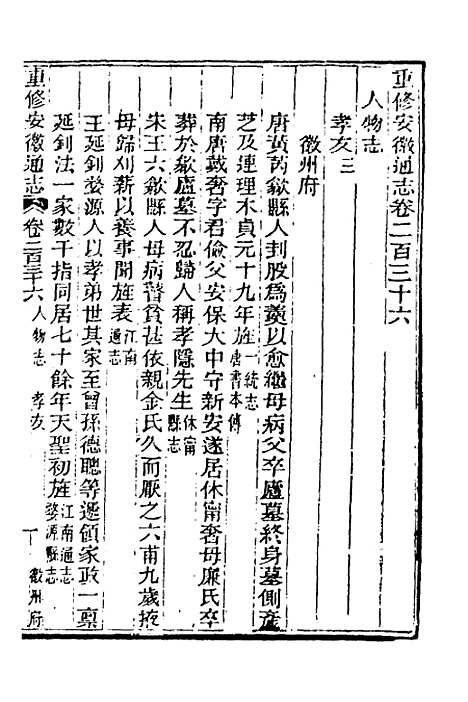 重修安徽通志卷二百三十六
人物志
孝友三
徽州府
唐黃芮歙縣人刲股爲羹以愈繼母病父卒廬墓終身墓側產
芝及連理木貞元十九年旌一統志唐書本傳
南唐戴奢字君儉父安保大中守新安遂居休甯奢母廉氏卒
葬於歙廬墓不忍歸人稱孝隱先生休甯縣志
宋王六歙縣人母病瞽貧甚依親金氏久而厭之六甫九歲掖
母歸刈薪以養事聞旌表江南通志
王延釗婺源人以孝弟世其家至曾孫德聰等遞領家政一稟
延釗法一家數千指同居七十餘年天聖初旌江南通志婺源縣志
重修安徽通志 卷二百三十六 人物志 孝友 一 徽州府